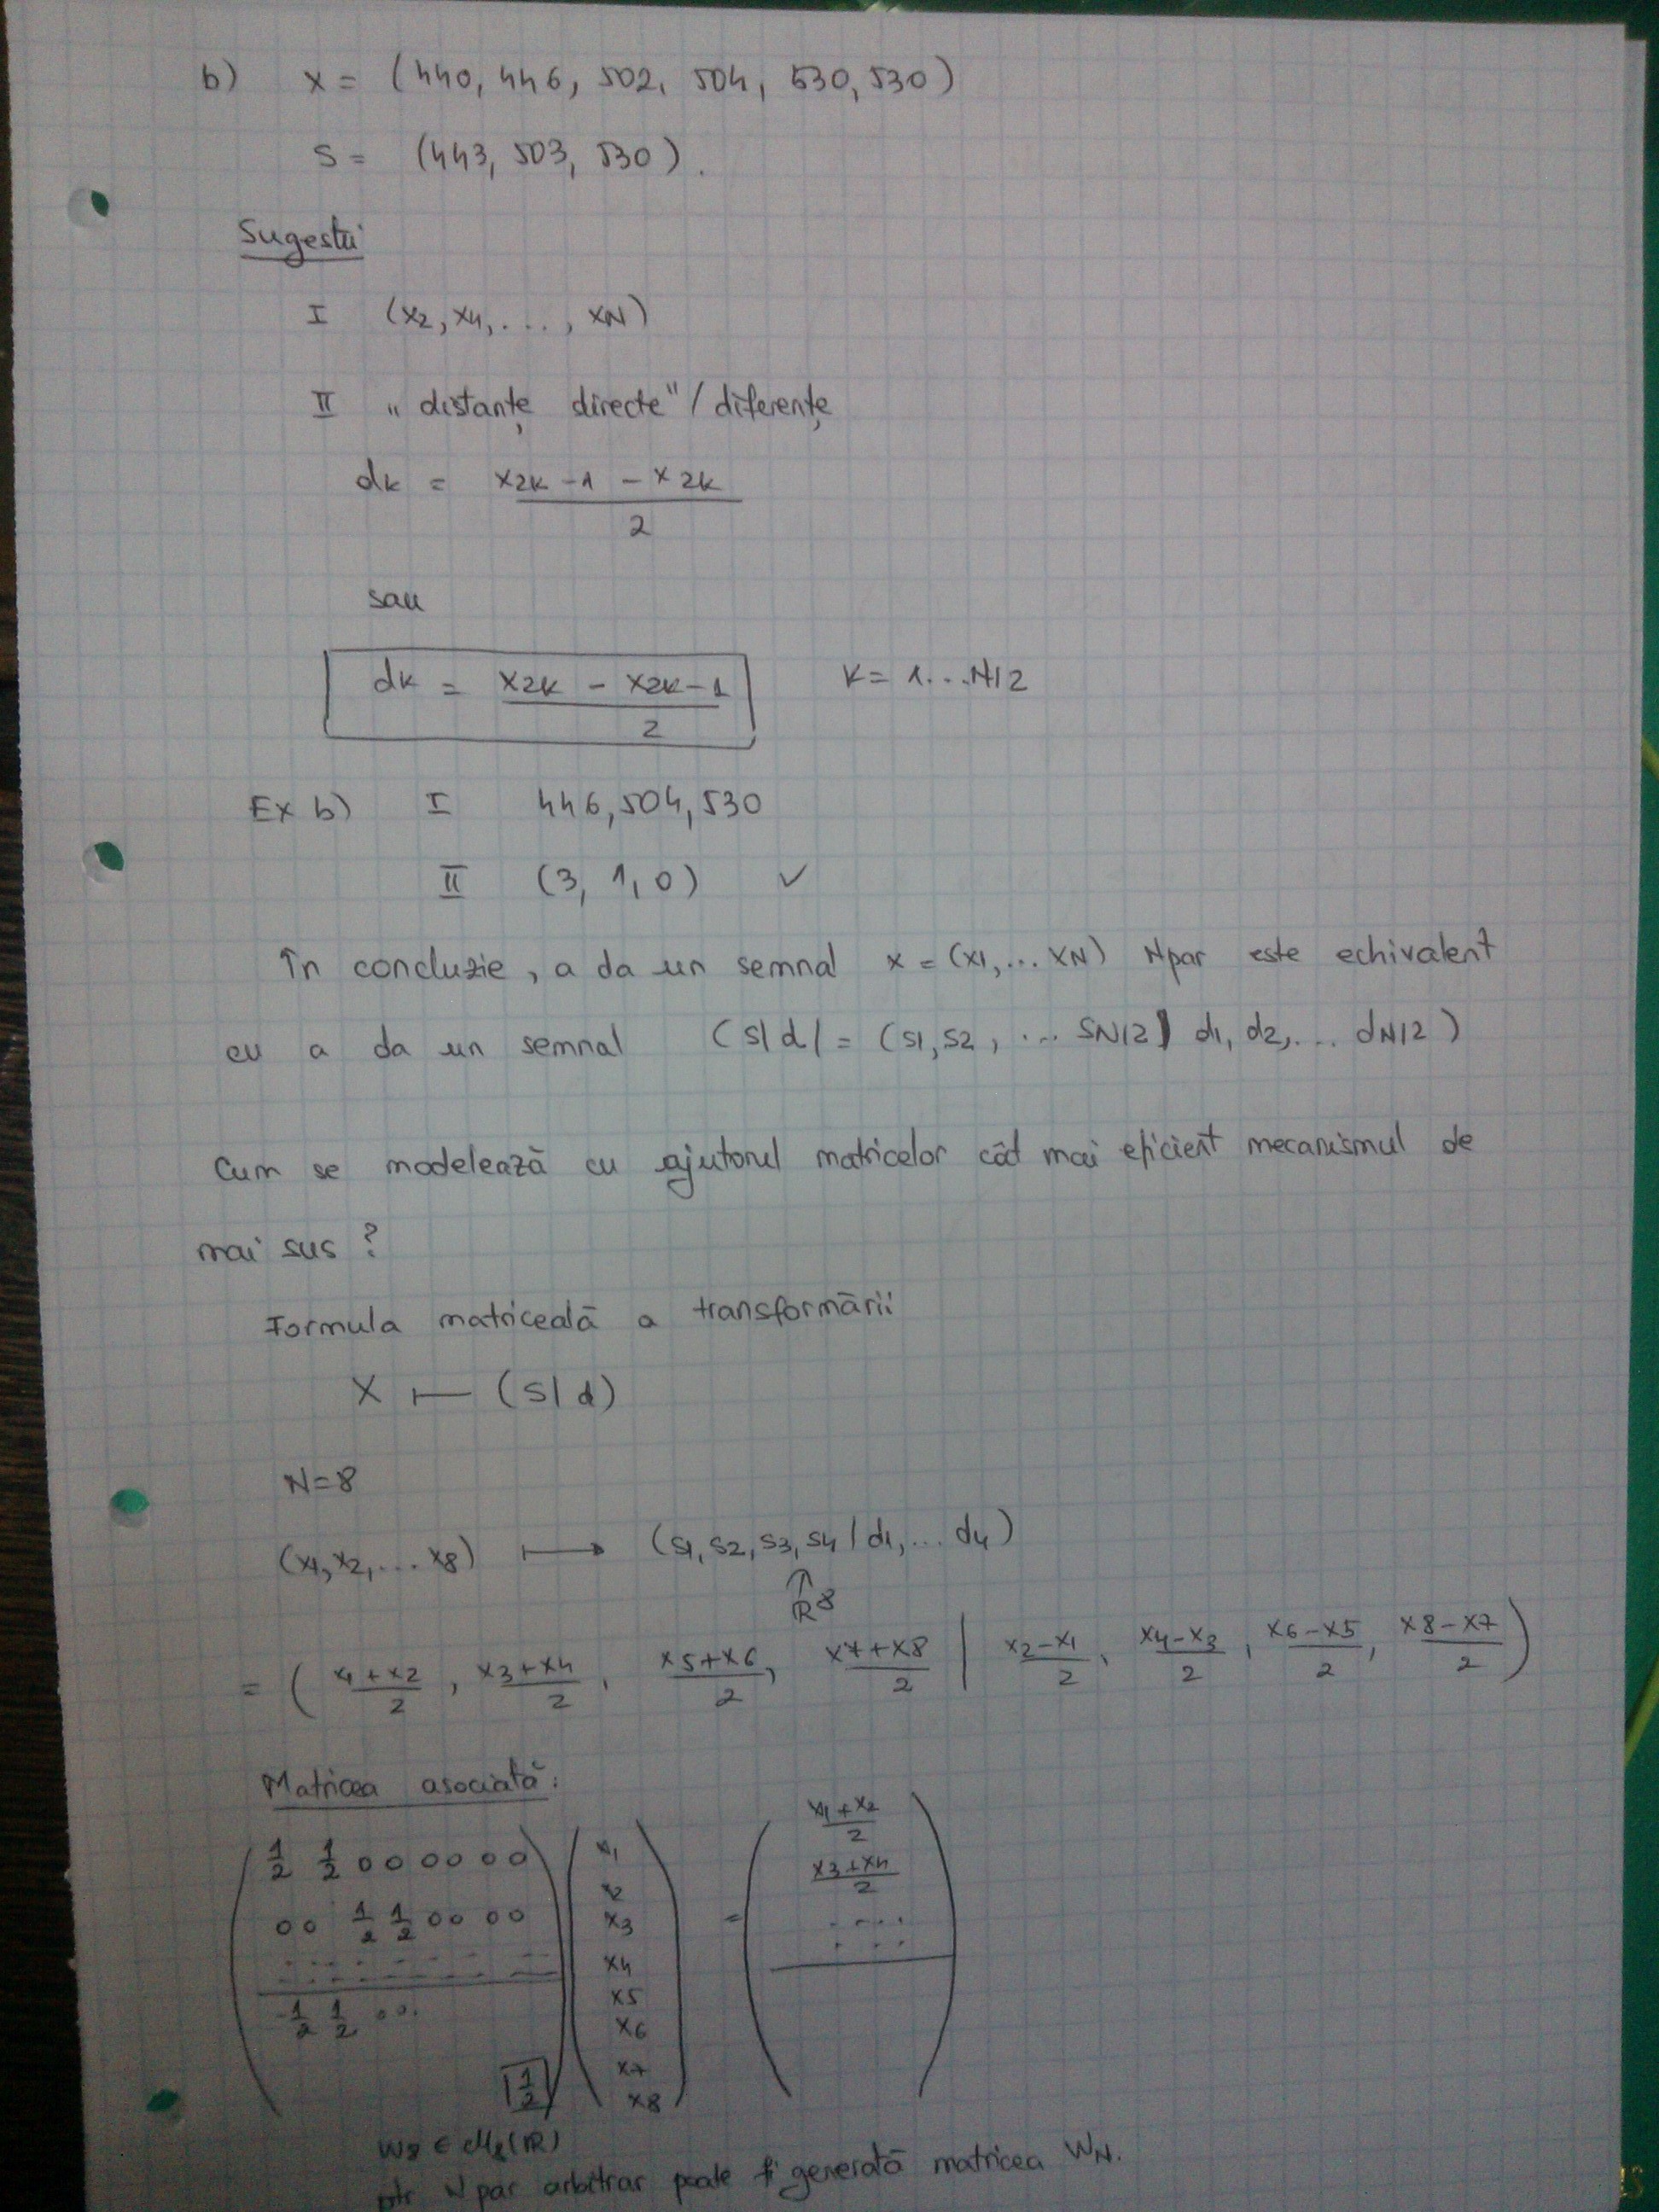 b) x = (440, 446, 502, 504, 530, 530)
s = (443, 503, 530).
Sugestii
I (x2, x4, . . . , xN)
II „distanțe directe"/ diferențe
dk = x2k-1 - x2k
2
sau
dk = x2k - x2k-1 k = 1...N/2
2
Ex b) I 446, 504, 530
II (3, 1, 0) ✓
În concluzie, a da un semnal x = (x1, ... xN) N par este echivalent
cu a da un semnal (s|d| = (s1, s2, ... sN/2| d1, d2, ... dN/2)
Cum se modelează cu ajutorul matricelor cât mai eficient mecanismul de
mai sus ?
Formula matriceală a transformării
X ⊢ (s|d)
N=8
(x1, x2, ... x8) ⟼ (s1, s2, s3, s4 | d1, ... d4)
⇑
ℝ8
= ( x1+x2/2 , x3+x4/2 , x5+x6/2 , x7+x8/2 | x2-x1/2 , x4-x3/2 , x6-x5/2 , x8-x7/2 )
Matricea asociată:
1/2 1/2 0 0 0 0 0 0 x1 x1+x2/2
x2 x3+x4/2
0 0 1/2 1/2 0 0 0 0 x3 = . . . .
x4
-1/2 1/2 0 0. x5
x6
x7
1/2 x8
W8 ∈ M8(ℝ)
ptr N par arbitrar poate fi generată matricea WN.